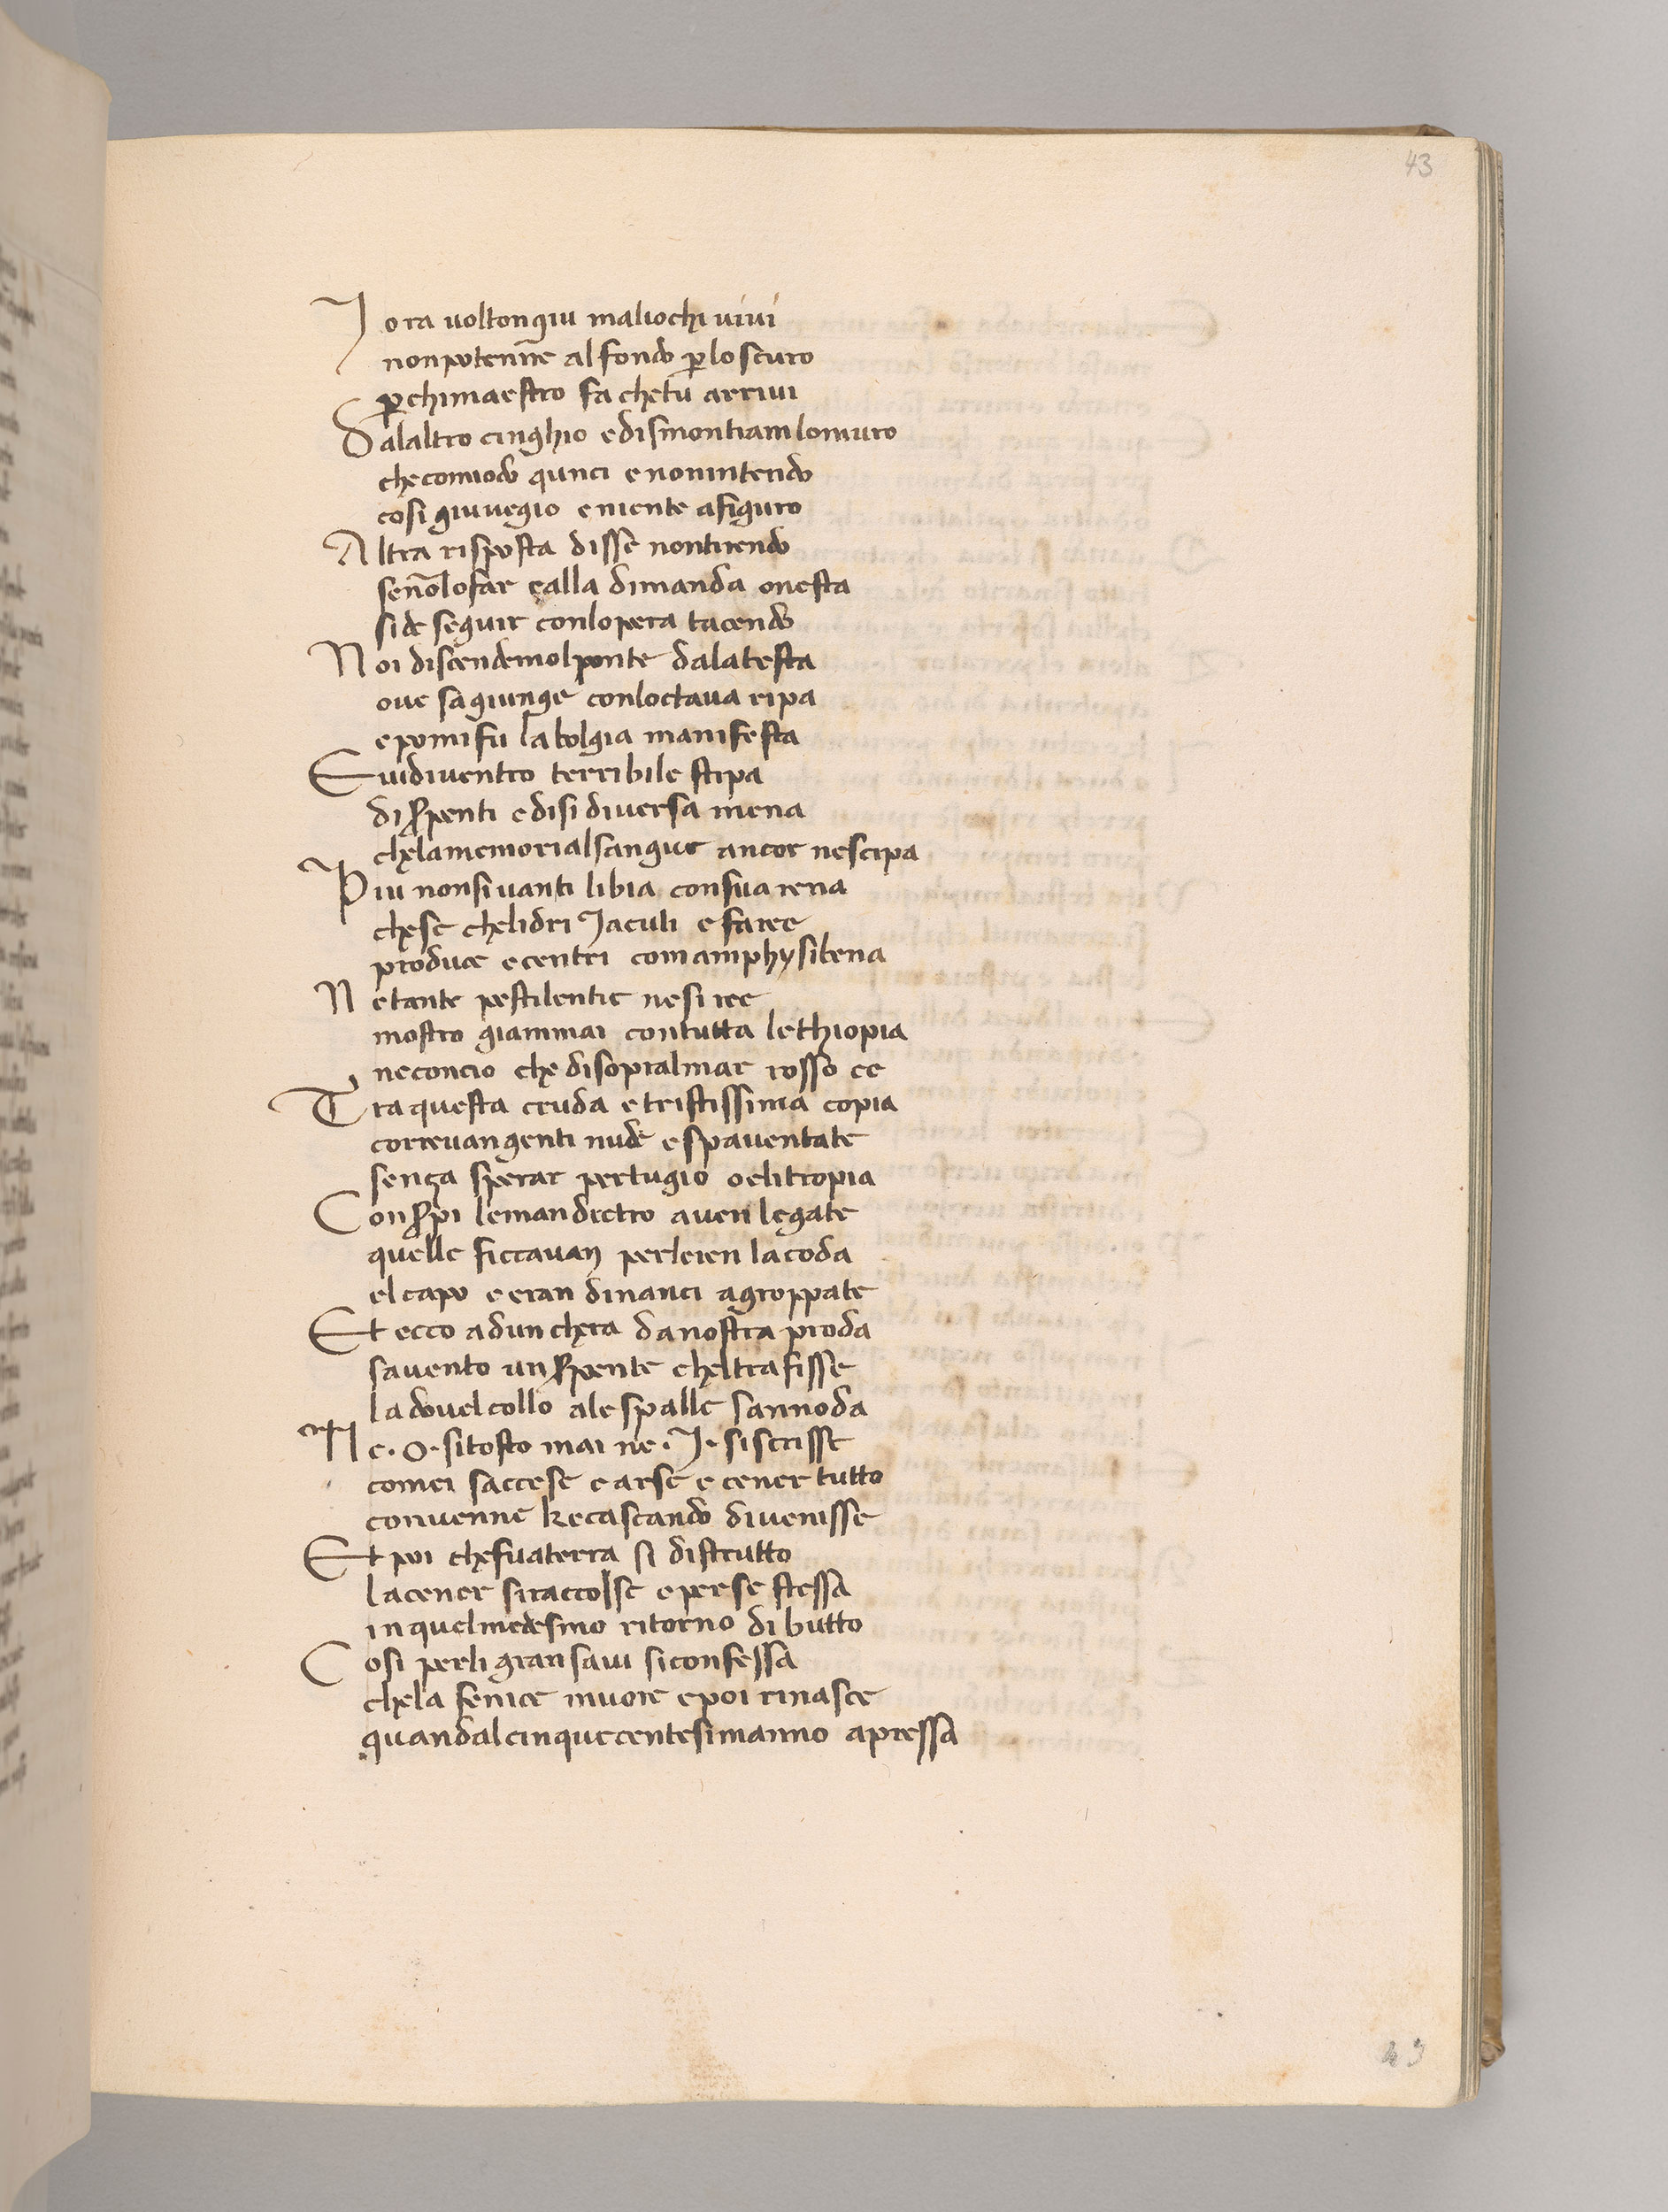 43
Jo ra uolton giu maliochi uiui
non potenne al fondo ꝑ lo scuro
ꝑchi maestro fa che tu arriui
Dalaltro cinghio e dismontiam lo muro
che comiodo qunci e non intendo
cosi giu uegio e niente afiguro
Altra risposta disse non ti rendo
se nō lo far ca lla dimanda onesta
si de seguir con lopera tacendo
Noi discendemol ponte da la testa
oue sagiunge con loctaua ripa
e poi mi fu la bolgia manifesta
E uidiuentro terribile stipa
di ẜpenti e di si diuersa mena
che la memorial sangue ancor ne scipa
Piu non si uanti libia con sua rena
che se chelidri Jaculi e faree
produce e centri com amphysibena
Ne tante pestilentie ne si ree
mostro giammai con tutta lethiopia
ne con cio che di sopral mar rosso ee
Tra questa cruda e tristissima copia
correuan genti nude e spauentate
sença sperar pertugio o elitropia
Con ẜpi le man dietro auen legate
quelle ficcauan per le ren la coda
el capo e eran dinanci agroppate
Et ecco ad un chera da nostra proda
sauento un ẜpente chel trafisse
la douel collo a le spalle sannoda
Ne .O. si tosto mai ne .J. si scrisse
comei saccese e arse e cener tutto
conuenne ke cascando diuenisse
Et poi che fu a terra si distrutto
la cener si raccolse e per se stessa
in quel medesmo ritorno di butto
Cosi per li gran saui si confessa
che la fenice muore e poi rinasce
quandal cinquecentesimanno apressa
43